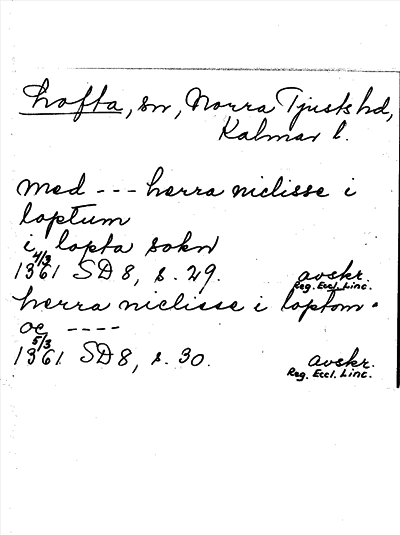 Lofta, sn, Norra Tjusts hd,
Kalmar l.
med --- herra niclisse i
loptum
i lopta sokn
4/3
1361 SD 8, s. 29. avskr.
Reg. Eccl. Linc.
herra niclisse i loptom
oc ----
5/3
1361 SD 8, s. 30. avskr.
Reg. Eccl. Linc.